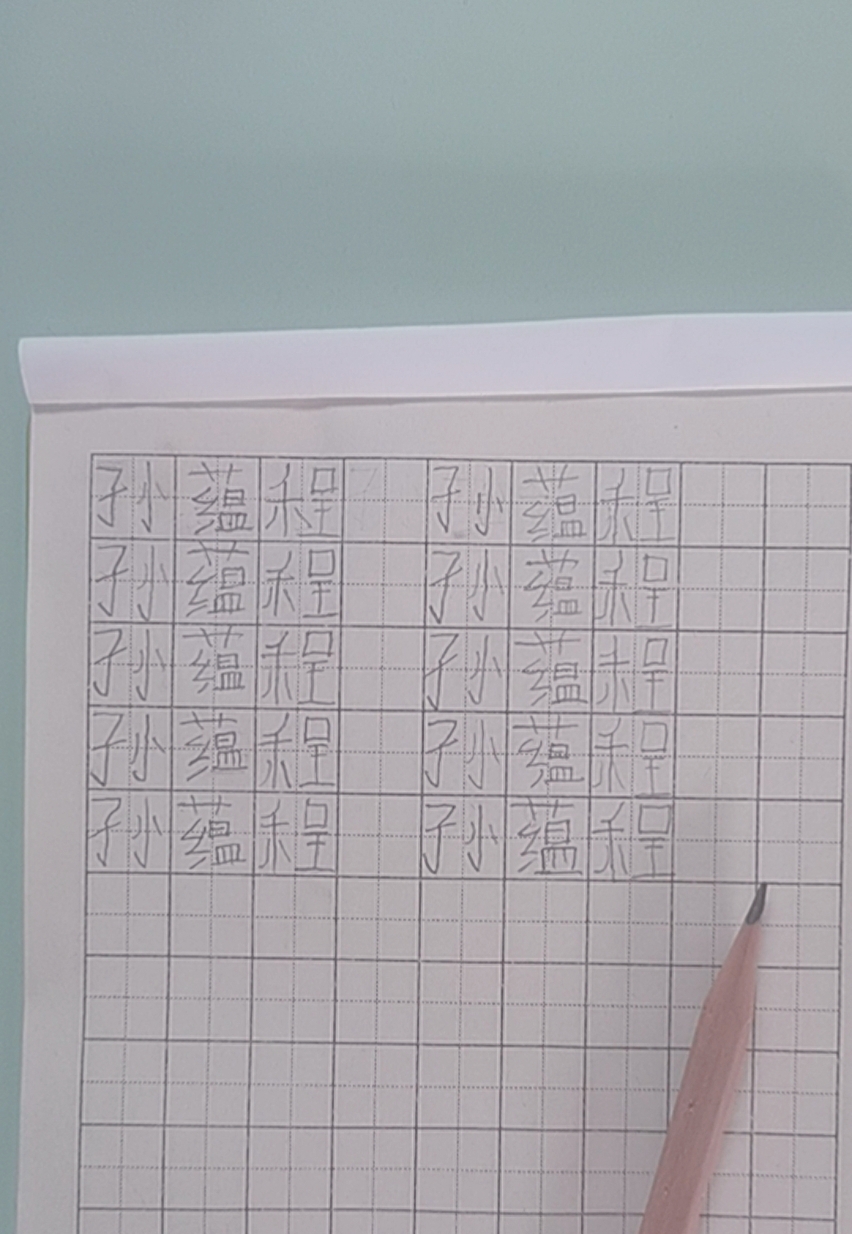 孙蕴程 孙蕴程
孙蕴程 孙蕴程
孙蕴程 孙蕴程
孙蕴程 孙蕴程
孙蕴程 孙蕴程